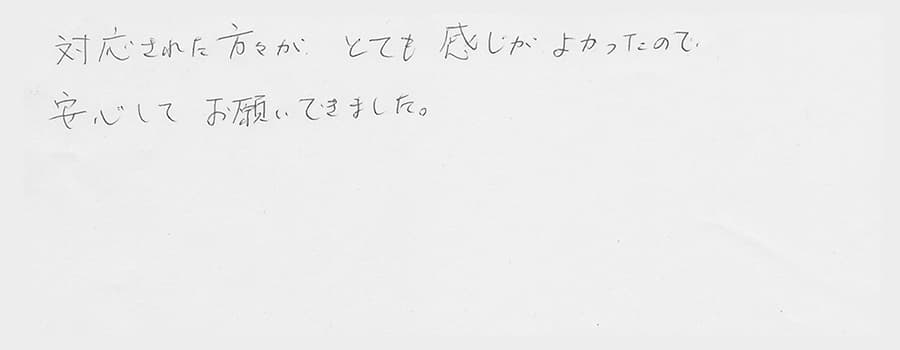 対応された方々が とても 感じが よかったので
安心して お願いできました。